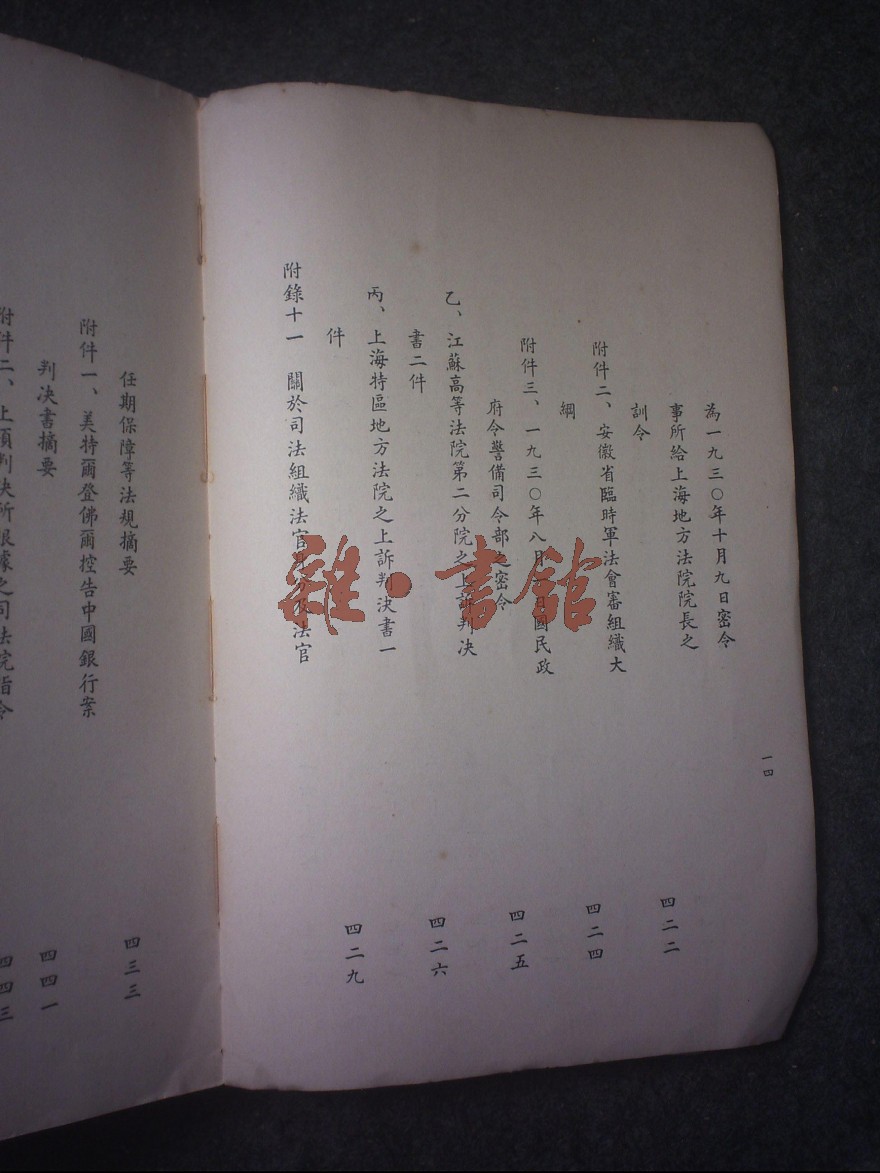 為一九三〇年十月九日密令
事所給上海地方法院院長之
訓令
四二二
附件二、安徽省臨時軍法會審組織大
綱
四二四
附件三、一九三〇年八月一日國民政
府令警備司令部之密令
四二五
乙、江蘇高等法院第二分院之上訴判決
書二件
四二六
丙、上海特區地方法院之上訴判決書一
件
四二九
附錄十一 關於司法組織法官身分及法官
一四
任期保障等法規摘要
四三三
附件一、美特爾登佛爾控告中國銀行案
判決書摘要
四四一
附件二、上項判決所根據之司法院指令
四四三
雜·書館